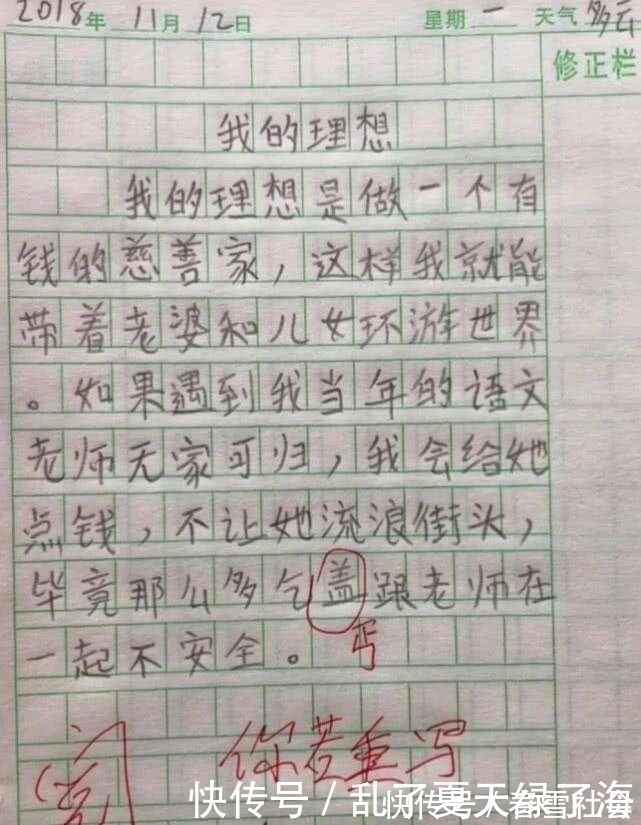 2018年 11月 12日 星期一 天气 多云
修正栏
我的理想
我的理想是做一个有
钱的慈善家，这样我就能
带着老婆和儿女环游世界
。如果遇到我当年的语文
老师无家可归，我会给她
点钱，不让她流浪街头，
毕竟那么多乞盖跟老师在
一起不安全。
丐
你若重写
快传号／乱了夏天绿了海